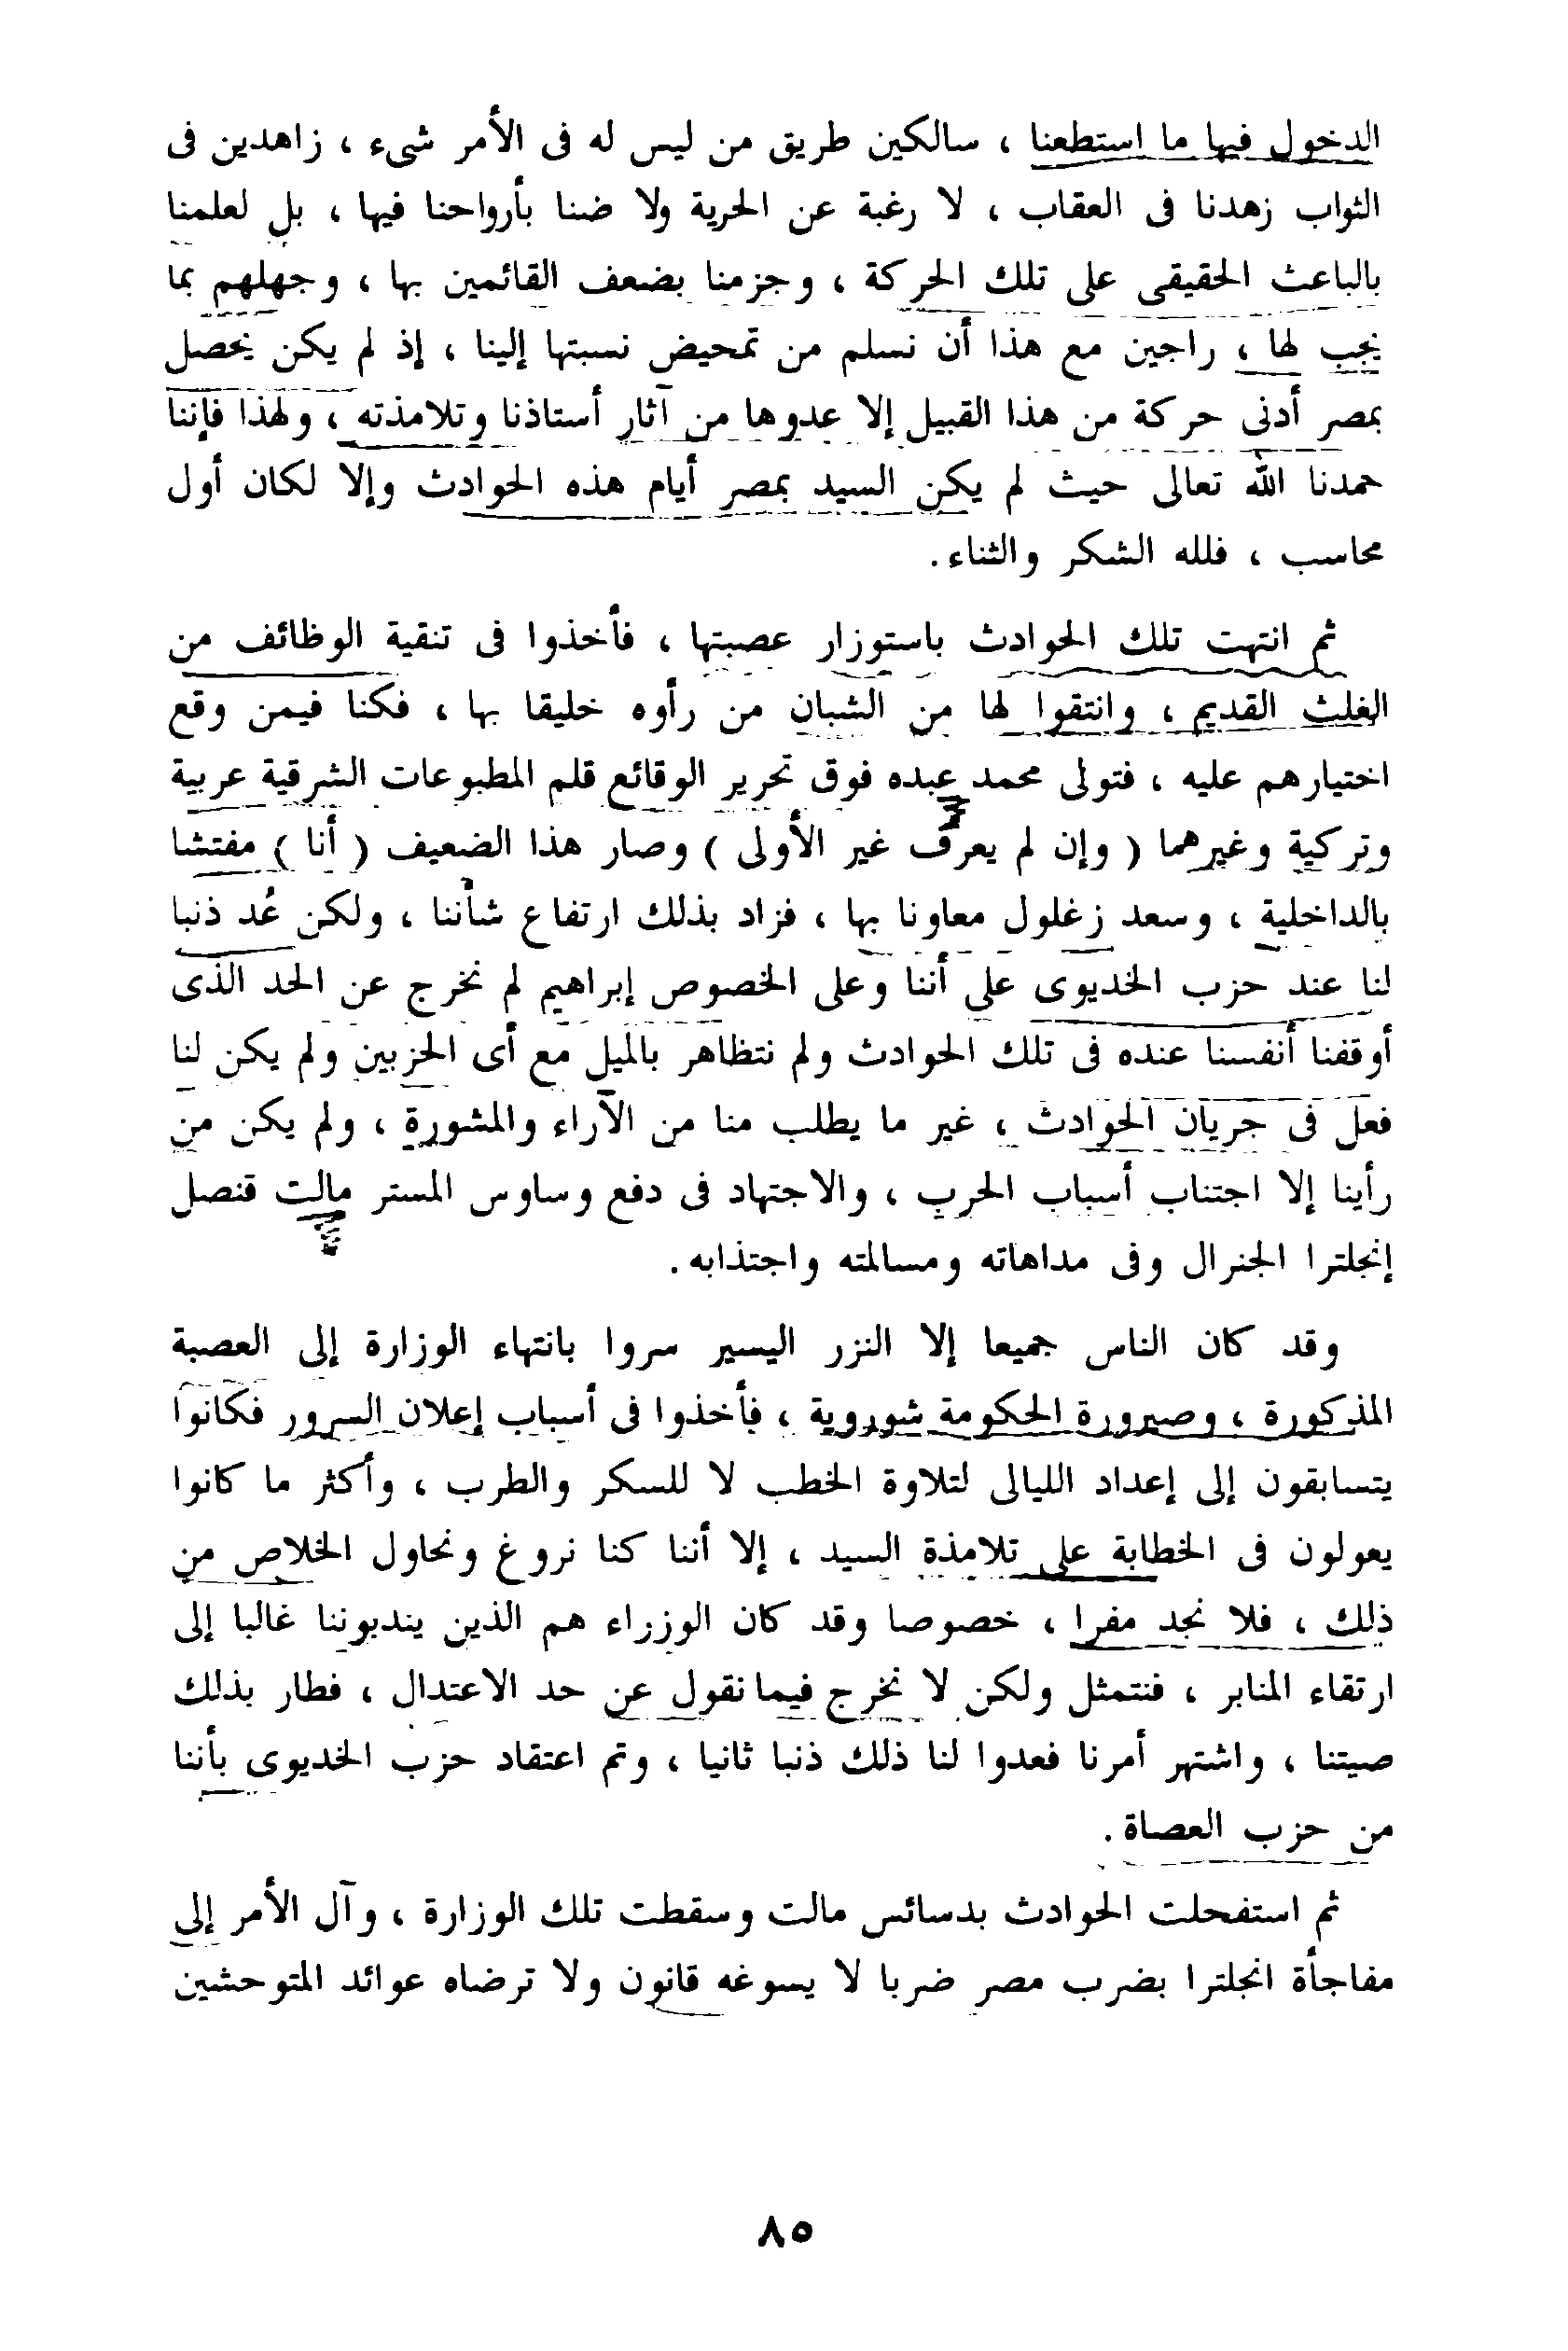 الدخول فيها ما استطعنا ، سالكين طريق من ليس له فى الأمر شىء ، زاهدين فى
الثواب زهدنا فى العقاب ، لا رغبة عن الحرية ولا ضنا بأرواحنا فيها ، بل لعلمنا
بالباعث الحقيقى على تلك الحركة ، وجزمنا بضعف القائمين بها ، وجهلهم بما
يجب لها ، راجين مع هذا أن نسلم من تمحيض نسبتها إلينا ، إذ لم يكن يحصل
بمصر أدنى حركة من هذا القبيل إلا عدوها من آثار أستاذنا وتلامذته ، ولهذا فإننا
حمدنا الله تعالى حيث لم يكن السيد بمصر أيام هذه الحوادث وإلا لكان أول
محاسب ، فلله الشكر والثناء .
ثم انتهت تلك الحوادث باستوزار عصبتها ، فأخذوا فى تنقية الوظائف من
الغلث القديم ، وانتقوا لها من الشبان من رأوه خليقا بها ، فكنا فيمن وقع
اختيارهم عليه ، فتولى محمد عبده فوق تحرير الوقائع قلم المطبوعات الشرقية عربية
وتركية وغيرهما ( وإن لم يعرف غير الأولى ) وصار هذا الضعيف ( أنا ) مفتشا
بالداخلية ، وسعد زغلول معاونا بها ، فزاد بذلك ارتفاع شأننا ، ولكن عُد ذنبا
لنا عند حزب الخديوى على أننا وعلى الخصوص إبراهيم لم نخرج عن الحد الذى
أوقفنا أنفسنا عنده فى تلك الحوادث ولم نتظاهر بالميل مع أى الحزبين ولم يكن لنا
فعل فى جريان الحوادث ، غير ما يطلب منا من الآراء والمشورة ، ولم يكن من
رأينا إلا اجتناب أسباب الحرب ، والاجتهاد فى دفع وساوس المستر مالت قنصل
إنجلترا الجنرال وفى مداهاته ومسالمته واجتذابه .
وقد كان الناس جميعا إلا النزر اليسير سروا بانتهاء الوزارة إلى العصبة
المذكورة ، وصيرورة الحكومة شوروية ، فأخذوا فى أسباب إعلان السرور فكانوا
يتسابقون إلى إعداد الليالى لتلاوة الخطب لا للسكر والطرب ، وأكثر ما كانوا
يعولون فى الخطابة على تلامذة السيد ، إلا أننا كنا نروغ ونحاول الخلاص من
ذلك ، فلا نجد مفرا ، خصوصا وقد كان الوزراء هم الذين يندبوننا غالبا إلى
ارتقاء المنابر ، فنتمثل ولكن لا نخرج فيما نقول عن حد الاعتدال ، فطار بذلك
صيتنا ، واشتهر أمرنا فعدوا لنا ذلك ذنبا ثانيا ، وتم اعتقاد حزب الخديوى بأننا
من حزب العصاة .
ثم استفحلت الحوادث بدسائس مالت وسقطت تلك الوزارة ، وآل الأمر إلى
مفاجأة انجلترا بضرب مصر ضربا لا يسوغه قانون ولا ترضاه عوائد المتوحشين
٨٥